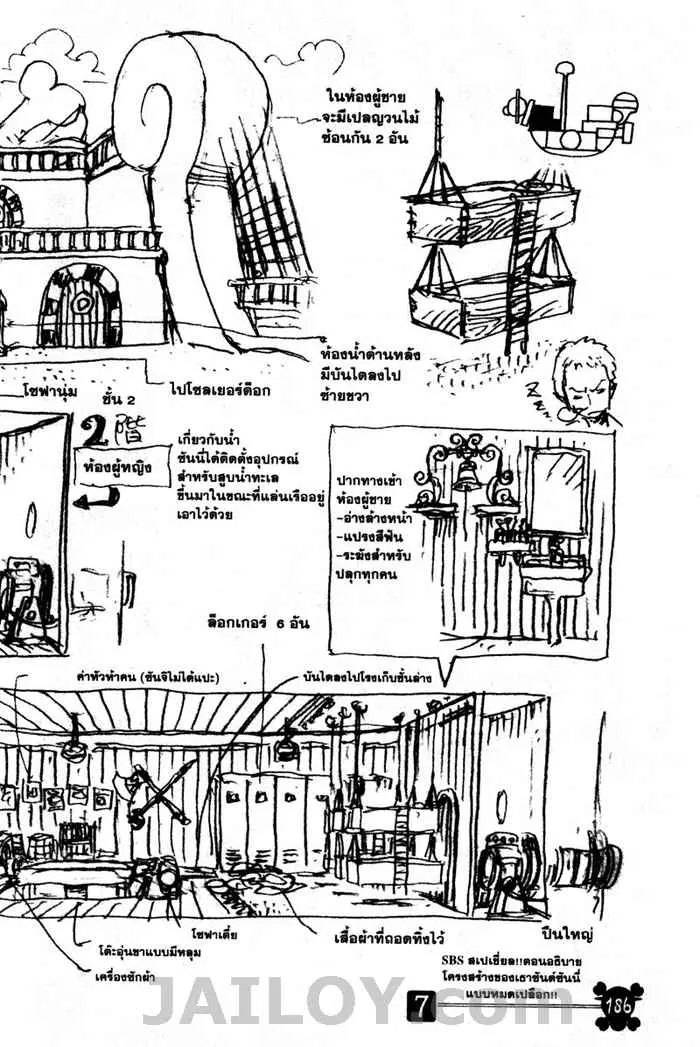 ในห้องผู้ชาย
จะมีเปลญวนไม้
ซ้อนกัน 2 อัน
ห้องน้ำด้านหลัง
มีบันไดลงไป
ซ้ายขวา
ไปโซลเยอร์ด็อก
โซฟานุ่ม
ชั้น 2
2階
ห้องผู้หญิง
เกี่ยวกับน้ำ
ซันนี่ได้ติดตั้งอุปกรณ์
สำหรับสูบน้ำทะเล
ขึ้นมาในขณะที่แล่นเรืออยู่
เอาไว้ด้วย
ปากทางเข้า
ห้องผู้ชาย
-อ่างล้างหน้า
-แปรงสีฟัน
-ระฆังสำหรับ
ปลุกทุกคน
ZZZ
ล็อกเกอร์ 6 อัน
ค่าหัวห้าคน (ซันจิไม่ได้แปะ)
บันไดลงไปโรงเก็บชั้นล่าง
โซฟาเตี้ย
เสื้อผ้าที่ถอดทิ้งไว้
ปืนใหญ่
โต๊ะอุ่นขาแบบมีหลุม
เครื่องซักผ้า
SBS สเปเชี่ยล!!ตอนอธิบาย
โครงสร้างของเธาซันด์ซันนี่
แบบหมดเปลือก!!
7
186
JAILOY.com